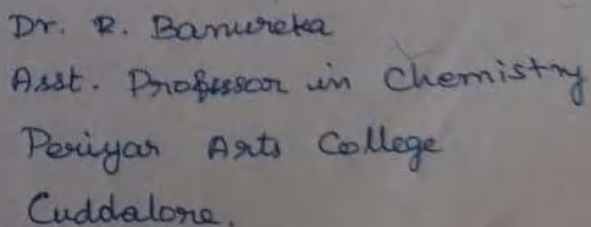 Dr. R. Banureka
Asst. Professor in Chemistry
Periyar Arts College
Cuddalore.